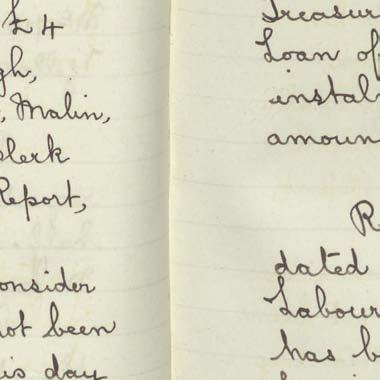 £4
gh,
Malin,
clerk
Report,
onsider
not been
is day
Treasur
Loan of
instal
amoun
R
dated
Labour
has b